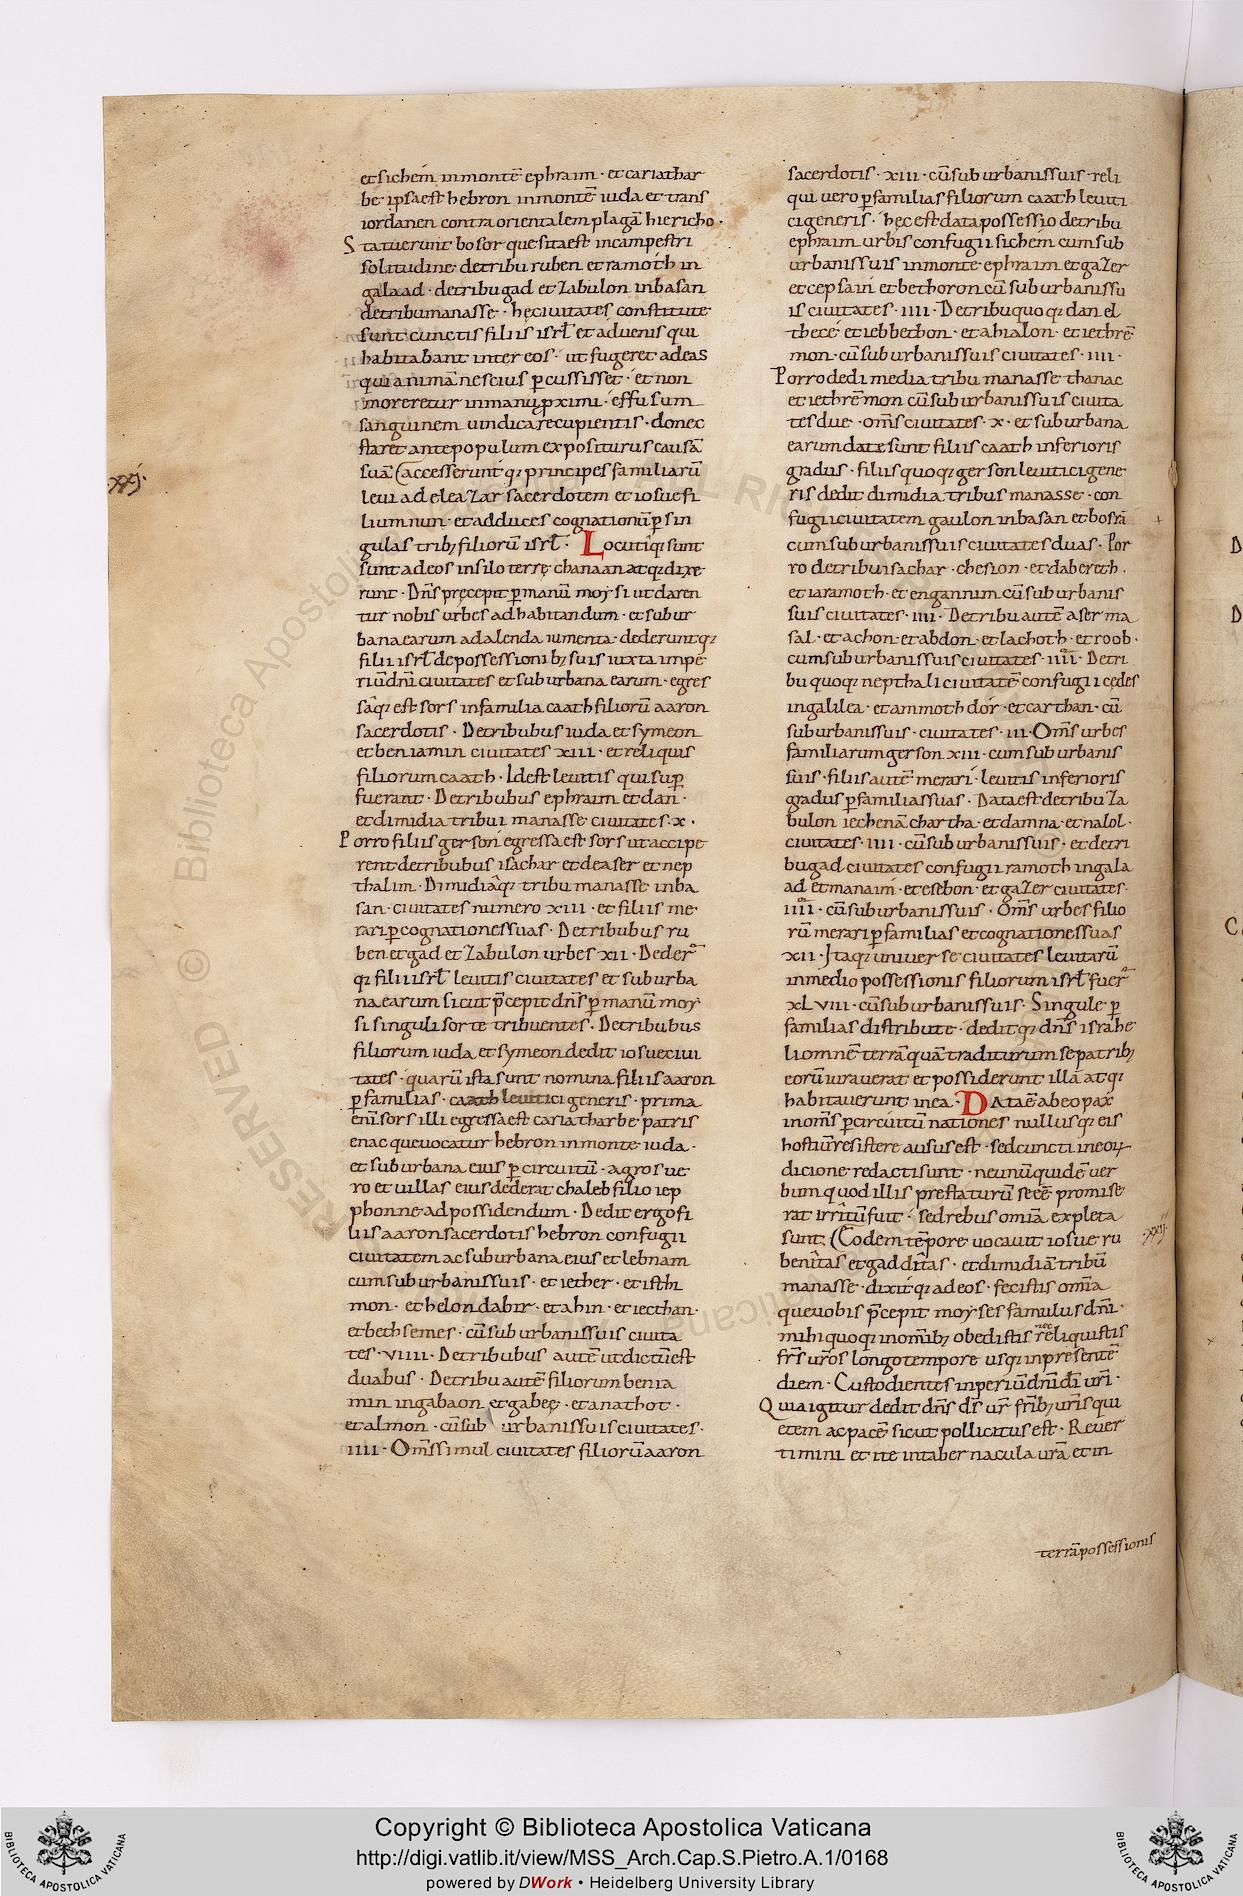 et sichem in montē ephraim · et cariathar
be ipsa est hebron in montē iuda et trans
iordanen contra orientalem plagā hiericho ·
Statuerunt bosor que sita est in campestri
solitudine de tribu ruben et ramoth in
galaad · de tribu gad et zabulon in basan
de tribu manasse · hę ciuitates constitute
sunt cunctis filiis isrł et aduenis qui
habitabant inter eos · ut fugeret ad eas
qui animā nescius ꝑcussisset · et non
moreretur in manu ꝓximi · effusum
sanguinem uindicare cupientis · donec
staret ante populum expositurus causā
suā (accesserunt q; principes familiarū
leui ad eleazar sacerdotem et iosue fi
lium nun · et ad duces cognationū ꝑ sin
gulas trib; filiorū isrł · Locutiq; sunt
sunt ad eos in silo terrę chanaan atq; dixe
runt · Dn̄s pręcepit ꝑ manū moysi ut daren
tur nobis urbes ad habitandum · et subur
bana earum ad alenda iumenta · dederuntq;
filii isrł de possessionib; suis iuxta impe
riū dn̄i ciuitates et suburbana earum · egres
saq; est sors in familia caath filiorū aaron
sacerdotis · De tribubus iuda et symeon
et beniamin ciuitates xiii · et reliquis
filiorum caath · Idest leuitis qui sup̱
fuerant · De tribubus ephraim et dan ·
et dimidia tribui manasse ciuitates · x ·
Porro filiis gerson egressa est sors ut accipe
rent de tribubus isachar et de aser et nep
thalim · Dimidiaq; tribu manasse in ba
san · ciuitates numero xiii · et filiis me
rari ꝑ cognationes suas · De tribubus ru
ben et gad et zabulon urbes xii · Deder
q; filii isrł leuitis ciuitates et suburba
na earum sicut p̄cepit dn̄s ꝑ manū moy
si singuli sorte tribuentes · De tribubus
filiorum iuda et symeon dedit iosue ciui
tates · quarū ista sunt nomina filiis aaron
ꝑ familias · caath leuitici generis · prima
enī sors illi egressa est cariatharbe patris
enac que uocatur hebron in monte iuda ·
et suburbana eius ꝑ circuitū · agros ue
ro et uillas eius dederat chaleb filio iep
phonne ad possidendum · Dedit ergo fi
liis aaron sacerdotis hebron confugii
ciuitatem ac suburbana eius et lebnam
cum suburbanis suis · et iether · et isthi
mon · et helon dabir · et ahin · et iecthan ·
et bethsemes · cū suburbanis suis ciuita
tes · viiii · De tribubus autē ut dictū est
duabus · De tribu autē filiorum benia
min in gabaon et gabeę · et anathot ·
et almon · cū sub urbanis suis ciuitates ·
iiii · Om̄s simul ciuitates filiorū aaron
sacerdotis · xiii · cū suburbanis suis · reli
qui uero ꝑ familias filiorum caath leuiti
ci generis · hęc est data possessio de tribu
ephraim urbis confugii sichem cum sub
urbanis suis in monte ephraim et gazer
et cepsain et bethoron cū suburbanis su
is ciuitates · iiii · De tribu quoq; dan el
thece et iebbethon · et ahialon · et iethrē
mon · cū suburbanis suis ciuitates · iiii ·
Porro dedi media tribu manasse thanac
et iethrēmon cū suburbanis suis ciuita
tes due · om̄s ciuitates · x · et suburbana
earum date sunt filiis caath inferioris
gradus · filiis quoq; gerson leuitici gene
ris dedit dimidia tribus manasse · con
fugii ciuitatem gaulon in basan et bosrā
cum suburbanis suis ciuitates duas · Por
ro de tribu isachar · chesion · et dabereth ·
et iaramoth · et engannim cū suburbanis
suis ciuitates · iiii · De tribu autē aser ma
sal · et achon · et abdon · et lachoth · et roob ·
cum suburbanis suis ciuitates · iiii · De tri
bu quoq; nepthali ciuitatē confugii cedes
in galilea · et ammoth dor · et carthan · cū
suburbanis suis · ciuitates · iii · Om̄s urbes
familiarum gerson xiii · cum suburbanis
suis · filiis autē merari · leuitis inferioris
gradus ꝑ familias suas · Data est de tribu za
bulon iechenā chartha · et damna · et nalol ·
ciuitates · iiii · cū suburbanis suis · et de tri
bu gad ciuitates confugii ramoth in gala
ad et manaim · et esebon · et gazer ciuitates ·
iiii · cū suburbanis suis · Om̄s urbes filio
rū merari ꝑ familias et cognationes suas
xii · Itaq; uniuerse ciuitates leuitarū
in medio possessionis filiorum isrł fuer
xLviii · cū suburbanis suis · Singule ꝑ
familias distribute · deditq; dn̄s israhe
li omnē terrā quā traditurum se patrib;
eorū iurauerat et possiderunt illā atq;
habitauerunt in ea · Data ē ab eo pax
in om̄s ꝑ circuitū nationes nullusq; eis
hostiū resistere ausus est · sed cuncti in eoꝝ
dicione redacti sunt · ne unū quidē uer
bum quod illis prestaturū se eē promise
rat irritū fuit · sed rebus omīa expleta
sunt · (Eodem tēpore uocauit iosue ru
benitas et gadditas · et dimidiā tribū
manasse · dixitq; ad eos · fecistis omīa
que uobis p̄cepit moyses famulus dn̄i ·
mihi quoq; in omīb; obedistis nec reliquistis
fr̄s ur̄os longo tempore usq; in presentē
diem · Custodientes inperiū dn̄i dī ur̄i ·
Quia igitur dedit dn̄s ds̄ ur̄ fr̄ib; ur̄is qui
etem ac pacē sicut pollicitus est · Reuer
timini et ite in tabernacula ur̄a et in
terrā possessionis
xxi
xxii
Copyright © Biblioteca Apostolica Vaticana
http://digi.vatlib.it/view/MSS_Arch.Cap.S.Pietro.A.1/0168
powered by DWork • Heidelberg University Library